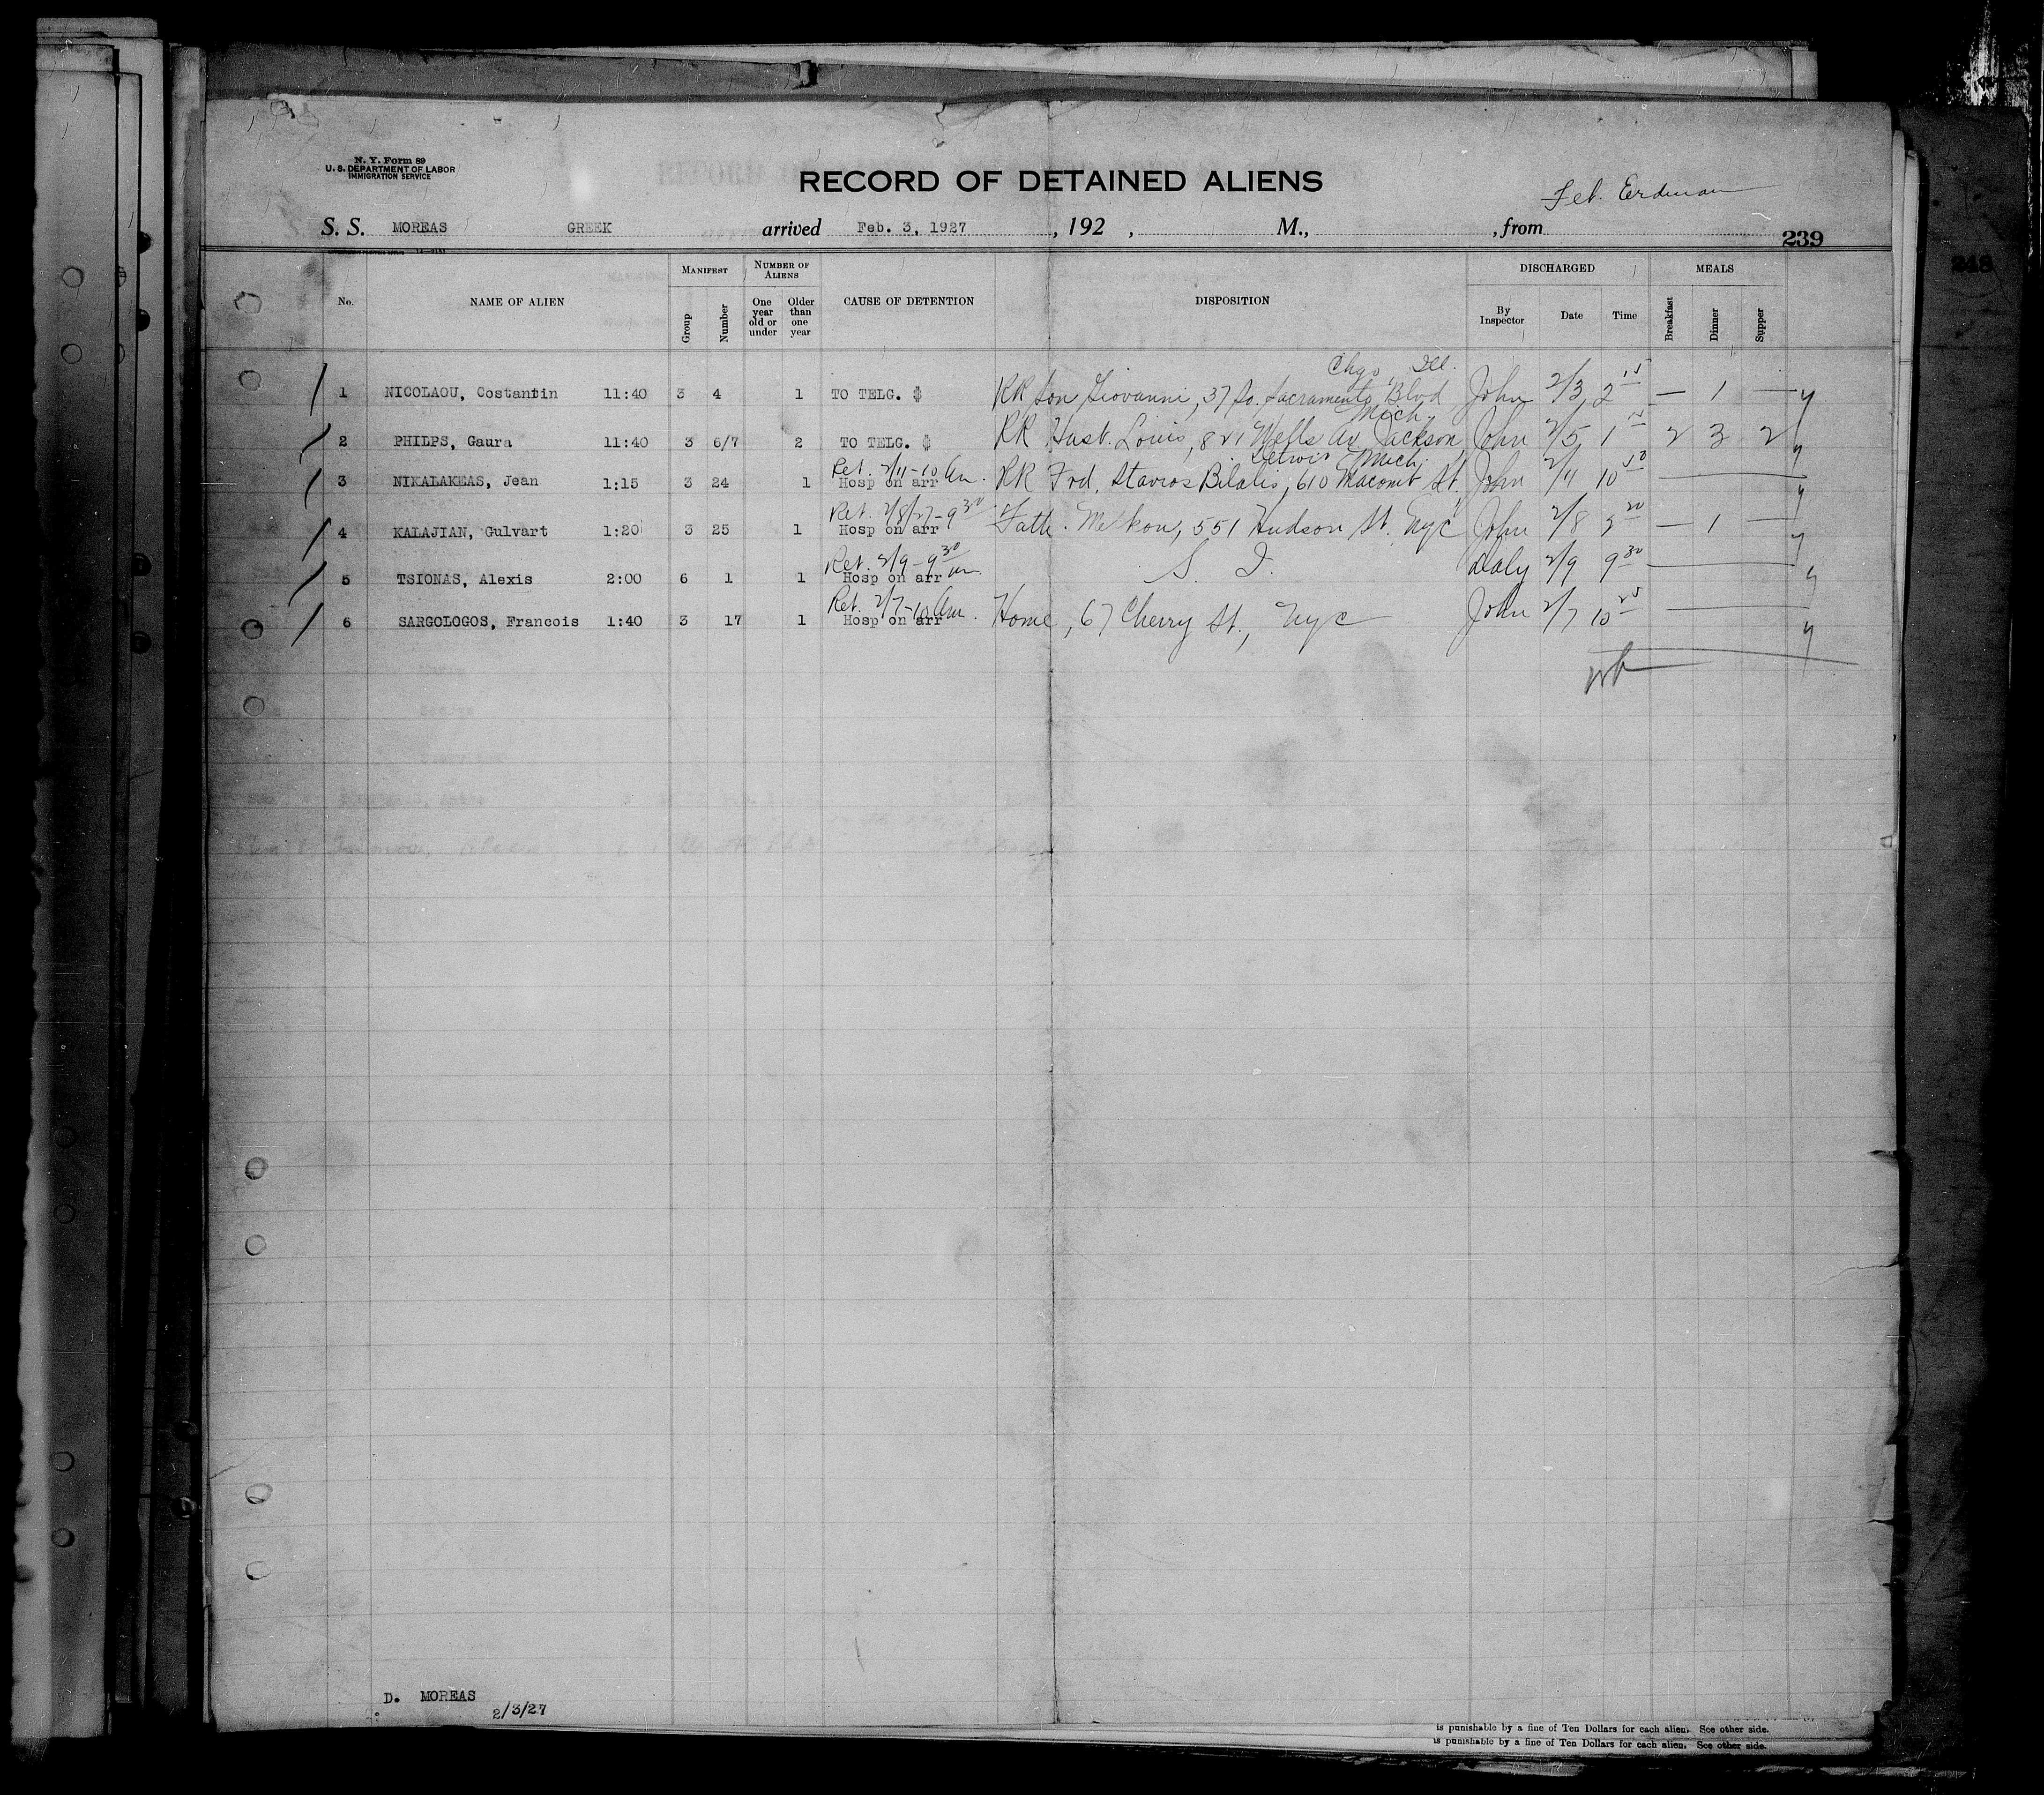 N. Y. Form 89
U. S. DEPARTMENT OF LABOR
IMMIGRATION SERVICE
RECORD OF DETAINED ALIENS
Erdman
S. S. MOREAS GREEK arrived Feb. 3, 1927 , 192 , M., , from 239
248
No. NAME OF ALIEN MANIFEST Group Number NUMBER OF ALIENS One year old or under Older than one year CAUSE OF DETENTION DISPOSITION DISCHARGED By Inspector Date Time MEALS Breakfast Dinner Supper
Chgo, Ill.
1 NICOLAOU, Costantin 11:40 3 4 1 TO TELG. $ RR Son Giovanni, 37 So. Sacramento Blvd John 2/3 2 15 — 1 — y
Mich.
2 PHILPS, Gaura 11:40 3 6/7 2 TO TELG. $ RR Husb. Louis, 821 Wells Av. Jackson, John 2/5 1 15 2 3 2 y
Ret. 2/11-10 Am. Detroit Mich.
3 NIKALAKEAS, Jean 1:15 3 24 1 Hosp on arr RR Frd. Stavros Bilalis, 610 Macomb St. John 2/11 10 50 y
Ret. 2/8/27-9 30
4 KALAJIAN, Gulvart 1:20 3 25 1 Hosp on arr Fath. Melkon, 551 Hudson St. Nyc John 2/8 3 20 — 1 — y
Ret. 2/9-9 30 am
5 TSIONAS, Alexis 2:00 6 1 1 Hosp on arr S. I. Daly 2/9 9 30 y
Ret. 2/7-10 Am.
6 SARGOLOGOS, Francois 1:40 3 17 1 Hosp on arr Home, 67 Cherry St., Nyc John 2/7 10 25 y
D. MOREAS
2/3/27
is punishable by a fine of Ten Dollars for each alien. See other side.
is punishable by a fine of Ten Dollars for each alien. See other side.